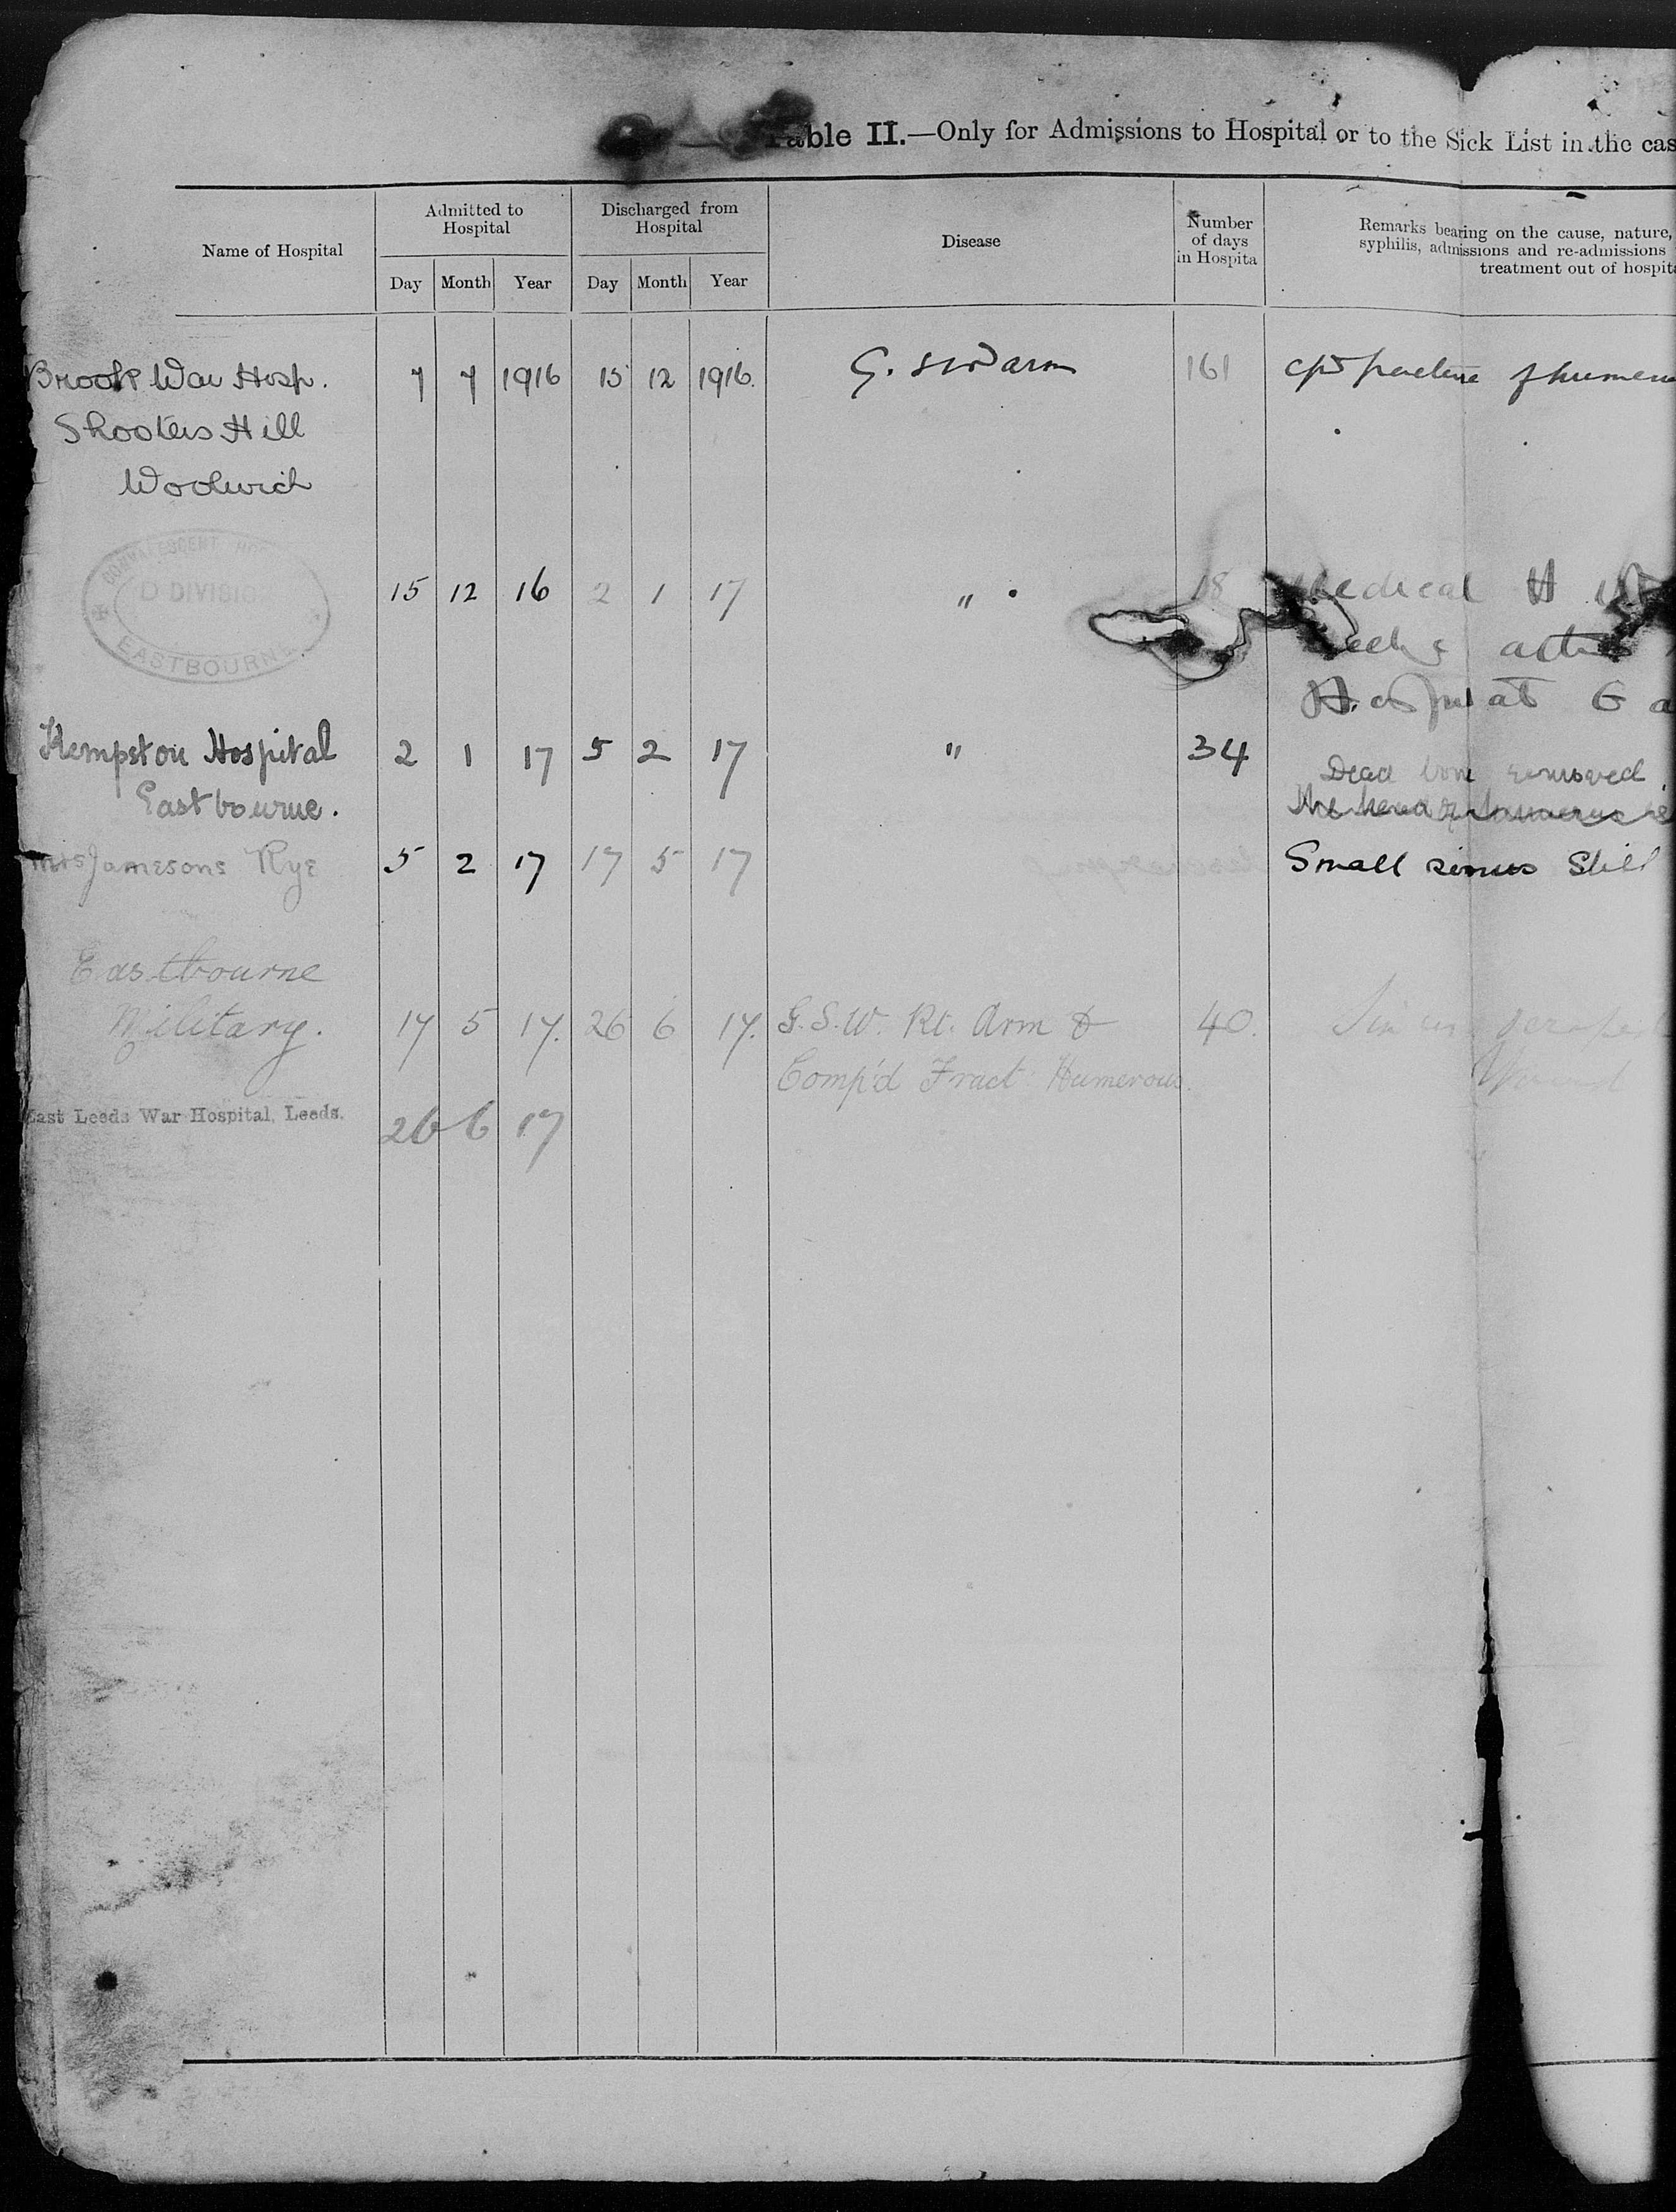 Table II.—Only for Admissions to Hospital or to the Sick List in the cas
Name of Hospital
Admitted to Hospital
Discharged from Hospital
Disease
Number of days in Hospita
Remarks bearing on the cause, nature,
syphilis, admissions and re-admissions
treatment out of hospita
Day Month Year Day Month Year
Brook War Hosp. 7 7 1916 15 12 1916. G. S W arm 161 cpd fracture of humeru
Shooters Hill
Woolwich
CONVALESCENT HO
D DIVISIO
EASTBOURNE
15 12 16 2 1 17 " 18 Medical H
Hospital G a
Kempston Hospital 2 1 17 5 2 17 " 34 Dead bone removed.
Eastbourne. the head of humerus
Mrs Jamesons Rye 5 2 17 17 5 17 Small sinus Still
Eastbourne
Military. 17 5 17. 26 6 17. G.S.W. Rt. Arm & 40. Sinus
Comp'd Fract Humerous.
East Leeds War Hospital, Leeds. 26 6 17